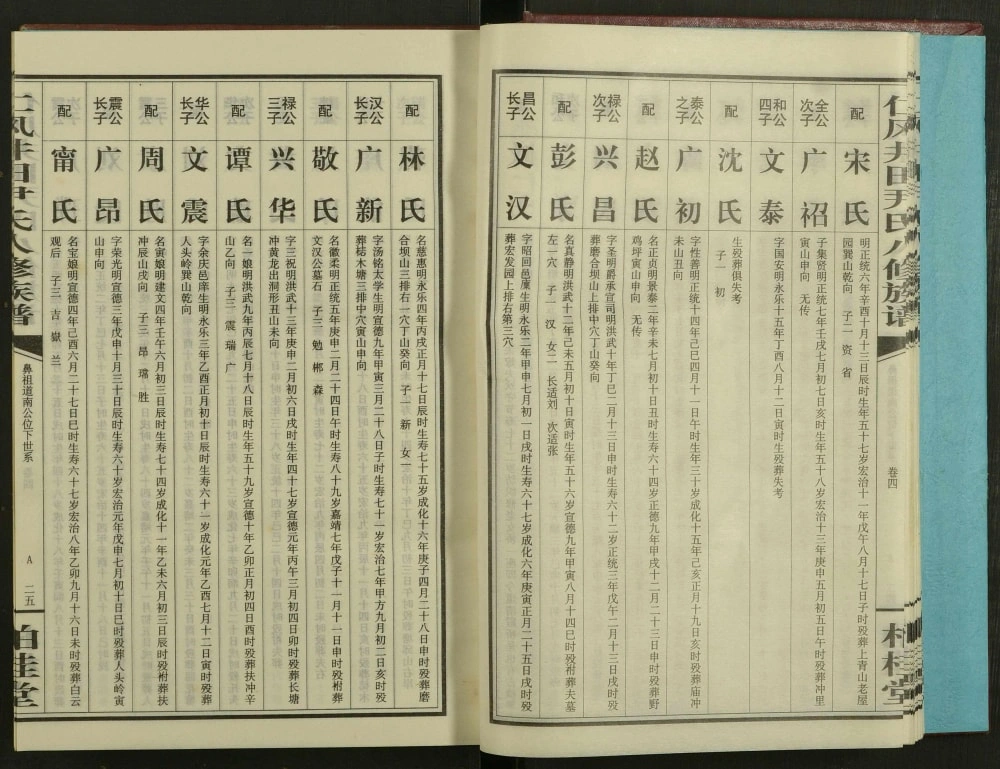 仁风井田尹氏八修族谱
卷四
柏桂堂
配
宋氏
明正统六年辛酉十月十三日辰时生年五十七岁宏治十一年戊午八月十七日子时殁葬上青山老屋
园巽山乾向 子二 资 省
全公
次子
广祒
子集贤明正统七年壬戌七月初七日亥时生年五十八岁宏治十三年庚申五月初五日午时殁葬冲里
寅山申向 无传
和公
四子
文泰
字国安明永乐十五年丁酉八月十二日寅时生殁葬失考
配
沈氏
生殁葬俱失考
子一 初
泰公
之子
广初
字性善明正统十四年己巳四月十一日午时生年三十岁成化十五年己亥正月十九日亥时殁葬庙冲
未山丑向
配
赵氏
名正贞明景泰二年辛未七月初十日丑时生寿六十四岁正德九年甲戌十二月二十三日亥时殁葬野
鸡坪寅山申向 无传
禄公
次子
兴昌
字圣明爵承宣司明洪武十年丁巳二月十三日申时生寿六十二岁正统三年戊午二月十三日戌时殁
葬磨合坝山上排中穴丁山癸向
配
彭氏
名真静明洪武十二年己未五月初十日寅时生年五十六岁宣德九年甲寅八月十四巳时殁祔葬夫墓
左一穴 子一 汉 女二 长适刘 次适张
昌公
长子
文汉
字昭回邑廪生明永乐二年甲申七月初一日戌时生寿六十七岁成化六年庚寅正月二十五日戌时殁
葬宏发园上排右第三穴
配
林氏
名慈惠明永乐四年丙戌正月十七日辰时生寿七十五岁成化十六年庚子四月二十八日申时殁葬磨
合坝山三排右一穴丁山癸向 子一 新 女一
汉公
长子
广新
字汤铭太学生明宣德九年甲寅三月二十八日子时生寿七十一岁宏治七年甲方九月初二日亥时殁
葬梽木塘三排中穴寅山申向
配
敬氏
名徽柔明正统五年庚申二月二十四日午时生寿八十九岁嘉靖七年戊子十一月十一日申时殁祔葬
文汉公墓石 子三 勉 郴 森
禄公
三子
兴华
字三祝明洪武十三年庚申二月初六日戌时生年四十七岁宣德元年丙午三月初四日卯时殁葬长塘
冲黄龙出洞形丑山未向
配
谭氏
名一娘明洪武九年丙辰七月十八日辰时生年五十九岁宣德十年乙卯正月初四日酉时殁葬扶冲辛
山乙向 子三 震 瑞 广
华公
长子
文震
字余庆邑庠生明永乐三年乙酉正月初十日辰时生寿六十一岁成化元年乙酉七月十二日寅时殁葬
人头岭巽山乾向
配
周氏
名寅娘明建文四年壬午六月初三日辰时生寿七十四岁成化十一年乙未六月初三日辰时殁祔葬扶
冲辰山戌向 子三 昂 瑺 胜
震公
长子
广昂
字荣光明宣德三年戊申十月三十日辰时生寿六十岁宏治元年戊申七月初十日巳时殁葬人头岭寅
山申向
配
甯氏
名宝娘明宣德四年己酉六月二十七日巳时生寿六十七岁宏治八年乙卯九月十六日未时殁葬白云
观后 子三 吉 嶽 兰
鼻祖道南公位下世系
A 二五